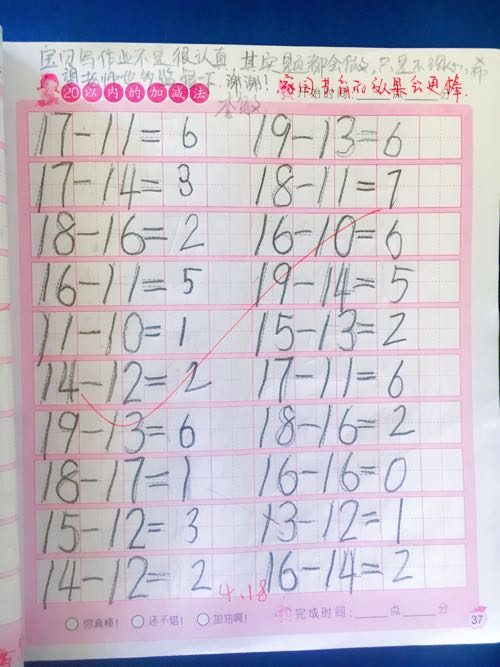 宝贝写作业不是很认真,其实题都会做,只是不细心,希
望老师也多监督一下,谢谢!
家园共育的效果会更棒
20以内的加减法 开始时间: 点 分
17-11=6 19-13=6
17-14=3 18-11=7
18-16=2 16-10=6
16-11=5 19-14=5
11-10=1 15-13=2
14-12=2 17-11=6
19-13=6 18-16=2
18-17=1 16-16=0
15-12=3 13-12=1
14-12=2 16-14=2
4.18
你真棒! 还不错! 加油啊! 完成时间: 点 分
37